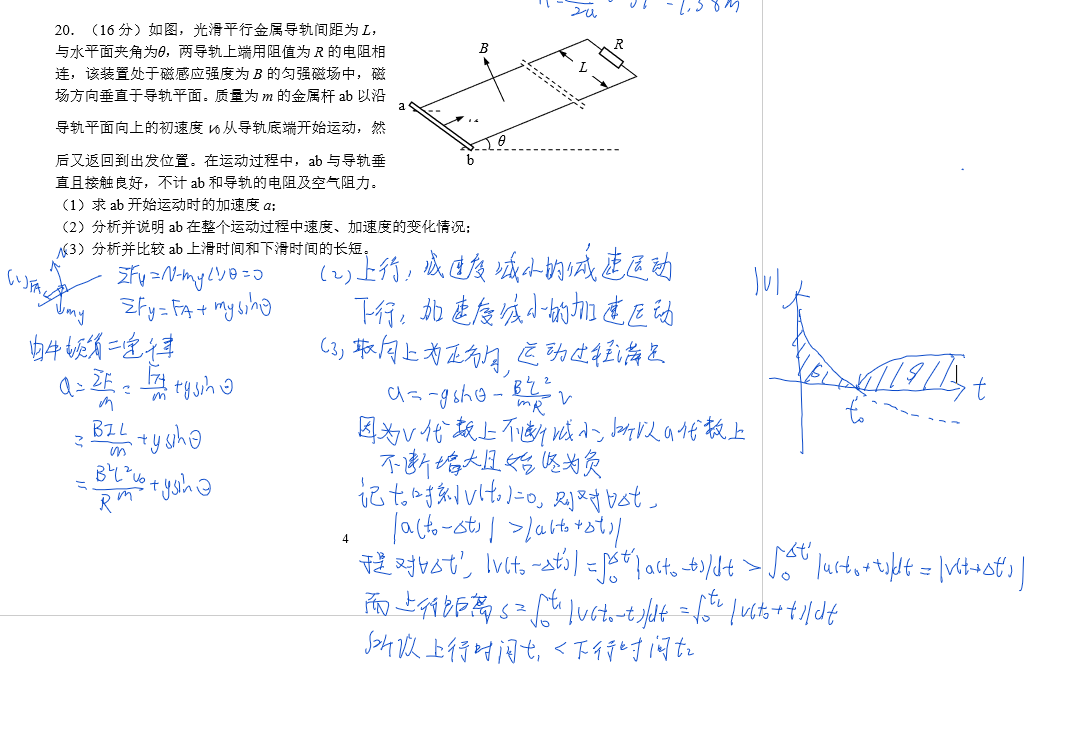 20．（16 分）如图，光滑平行金属导轨间距为 L，
与水平面夹角为θ，两导轨上端用阻值为 R 的电阻相
连，该装置处于磁感应强度为 B 的匀强磁场中，磁
场方向垂直于导轨平面。质量为 m 的金属杆 ab 以沿
导轨平面向上的初速度 v₀ 从导轨底端开始运动，然
后又返回到出发位置。在运动过程中，ab 与导轨垂
直且接触良好，不计 ab 和导轨的电阻及空气阻力。
（1）求 ab 开始运动时的加速度 a；
（2）分析并说明 ab 在整个运动过程中速度、加速度的变化情况；
（3）分析并比较 ab 上滑时间和下滑时间的长短。
B
R
L
a
θ
b
(1)
N
FA
mg
ΣFy=N-mgcosθ=0
ΣFy=FA+mgsinθ
由牛顿第二定律
a=ΣF/m=FA/m+gsinθ
=BIL/m+gsinθ
=B²L²v₀/Rm+gsinθ
(2) 上行，加速度减小的减速运动
下行，加速度减小的加速运动
(3) 取向上为正方向，运动过程满足
a=-gsinθ-B²L²/mR v
因为v代数上不断减小，所以a代数上
不断增大且始终为负
记t₀时刻v(t₀)=0，则对∀Δt，
|a(t₀-Δt)|>|a(t₀+Δt)|
于是对∀Δt'，|v(t₀-Δt')|=∫₀^Δt'|a(t₀-t)|dt>∫₀^Δt'|a(t₀+t)|dt=|v(t+Δt')|
而上行距离s=∫₀^t₁|v(t₀-t)|dt=∫₀^t₂|v(t₀+t)|dt
所以上行时间t₁<下行时间t₂
|v|
t₀
t
4